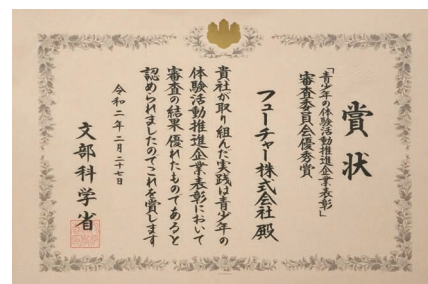 賞状
「青少年の体験活動推進企業表彰」
審査委員会優秀賞
フューチャー株式会社殿
貴社が取り組んだ実践は青少年の
体験活動推進企業表彰において
審査の結果優れたものであると
認められましたのでこれを賞します
令和二年二月二十七日
文部科学省